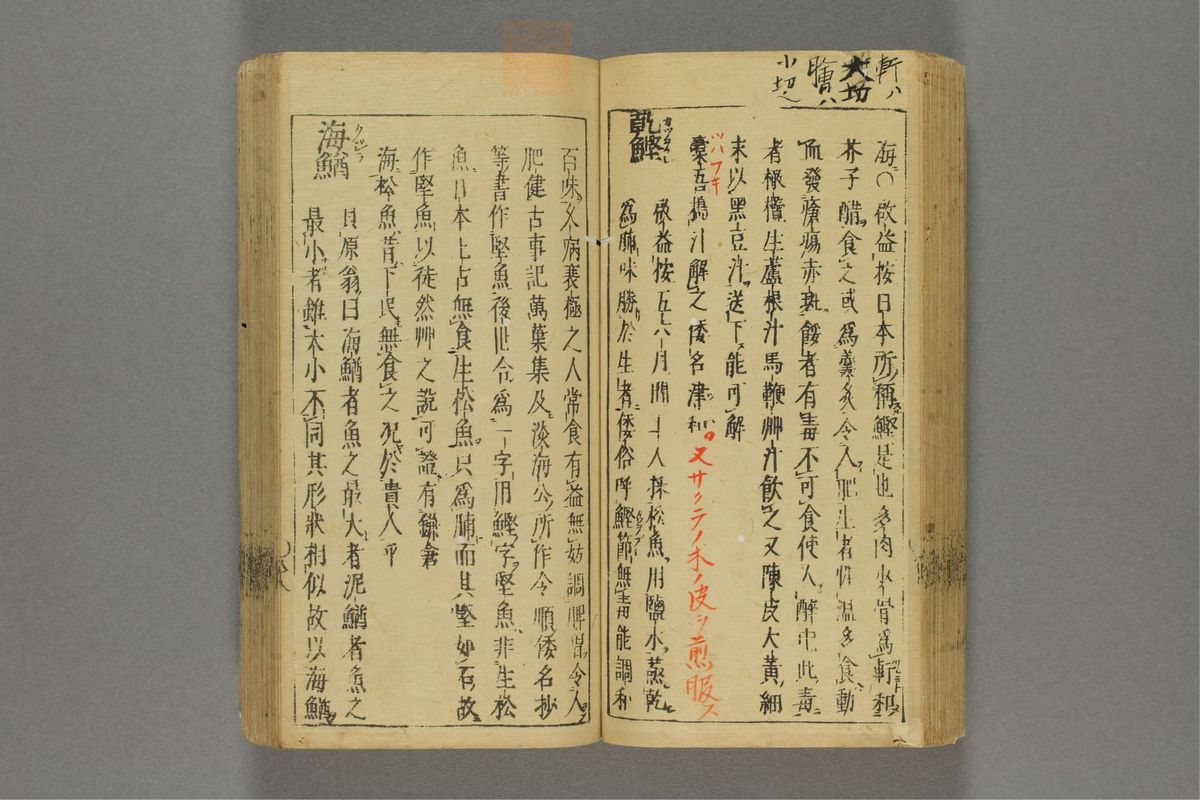 斬ハ
大切
膾ハ
小切也
海○啟益按日本所稱鰹是也多肉少骨爲斬和
芥子醋食之或爲羹炙令人肥生者性温多食動
而發瘡瘍赤斑餒者有毒不可食使人醉中此毒
者橄欖生蘆根汁馬鞭艸汁飲之又陳皮大黄細
末以黑豆汁送下能可解
ツハフキ
槖吾搗汁解之倭名津和 又サクラノ木ノ皮ヲ煎服ス
乾鰹
啟益按五六月間土人採松魚用鹽水蒸乾
爲脯味勝於生者倭俗呼鰹節無毒能調和
百味久病衰極之人常食有益無妨調脾胃令人
肥健古事記萬葉集及淡海公所作令順倭名抄
等書作堅魚後世合爲一字用鰹字堅魚非生松
魚日本上古無食生松魚只爲脯而其堅如石故
作堅魚以徒然艸之說可證有鎌倉
海松魚昔下民無食之況於貴人乎
海鰌
クジラ
貝原翁曰海鰌者魚之最大者泥鰌者魚之
最小者雖大小不同其形狀相似故以海鰌